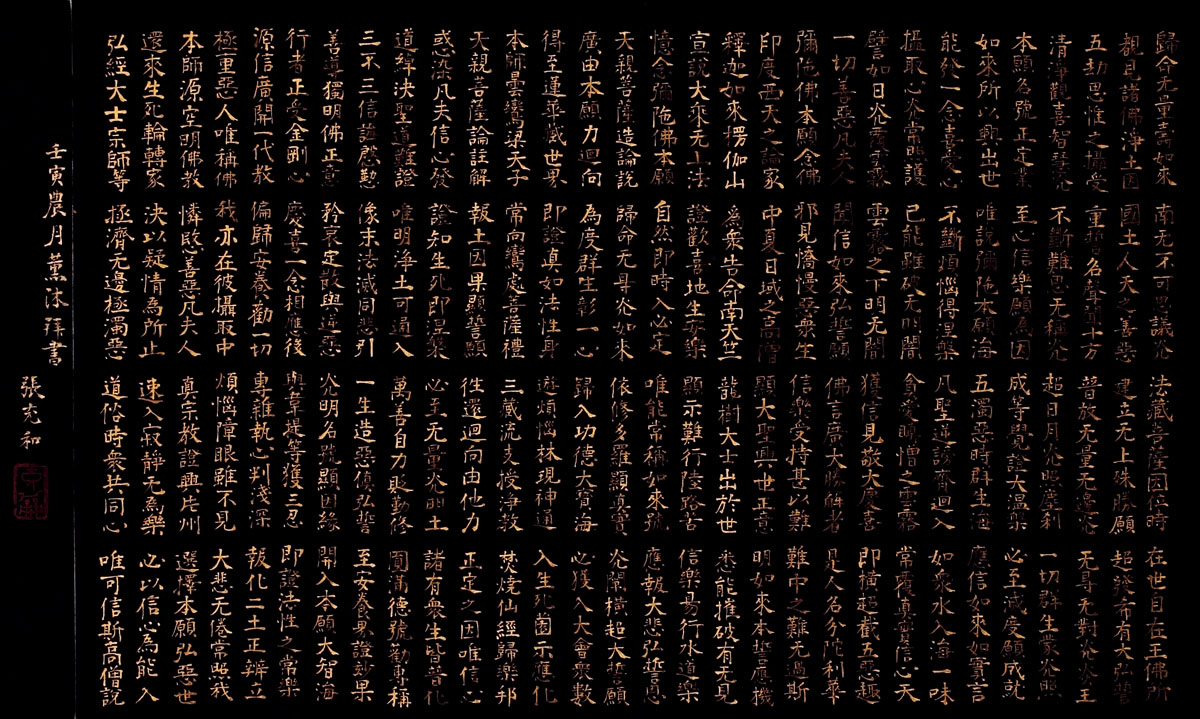 歸命无量壽如來 南无不可思議光 法藏菩薩因位時 在世自在王佛所
覩見諸佛淨土因 國土人天之善惡 建立无上殊勝願 超發希有大弘誓
五劫思惟之攝受 重誓名聲聞十方 普放无量无邊光 无㝵无對光炎王
清淨歡喜智慧光 不斷難思无稱光 超日月光照塵刹 一切群生蒙光照
本願名號正定業 至心信樂願為因 成等覺證大涅槃 必至滅度願成就
如來所以興出世 唯說彌陀本願海 五濁惡時群生海 應信如來如實言
能發一念喜愛心 不斷煩惱得涅槃 凡聖逆謗齊迴入 如衆水入海一味
攝取心光常照護 已能雖破无明闇 貪愛瞋憎之雲霧 常覆真實信心天
譬如日光覆雲霧 雲霧之下明无闇 獲信見敬大慶喜 即橫超截五惡趣
一切善惡凡夫人 聞信如來弘誓願 佛言廣大勝解者 是人名分陀利華
彌陀佛本願念佛 邪見憍慢惡衆生 信樂受持甚以難 難中之難无過斯
印度西天之論家 中夏日域之高僧 顯大聖興世正意 明如來本誓應機
釋迦如來楞伽山 為衆告命南天竺 龍樹大士出於世 悉能摧破有无見
宣說大乘无上法 證歡喜地生安樂 顯示難行陸路苦 信樂易行水道樂
憶念彌陀佛本願 自然即時入必定 唯能常稱如來號 應報大悲弘誓恩
天親菩薩造論說 歸命无㝵光如來 依修多羅顯真實 光闡橫超大誓願
廣由本願力迴向 為度群生彰一心 歸入功德大寶海 必獲入大會衆數
得至蓮華藏世界 即證真如法性身 遊煩惱林現神通 入生死園示應化
本師曇鸞梁天子 常向鸞處菩薩禮 三藏流支授淨教 焚燒仙經歸樂邦
天親菩薩論註解 報土因果顯誓願 往還迴向由他力 正定之因唯信心
惑染凡夫信心發 證知生死即涅槃 必至无量光明土 諸有衆生皆普化
道綽決聖道難證 唯明淨土可通入 萬善自力貶勤修 圓滿德號勸專稱
三不三信誨慇懃 像末法滅同悲引 一生造惡值弘誓 至安養界證妙果
善導獨明佛正意 矜哀定散與逆惡 光明名號顯因緣 開入本願大智海
行者正受金剛心 慶喜一念相應後 與韋提等獲三忍 即證法性之常樂
源信廣開一代教 偏歸安養勸一切 專雜執心判淺深 報化二土正辨立
極重惡人唯稱佛 我亦在彼攝取中 煩惱障眼雖不見 大悲无倦常照我
本師源空明佛教 憐愍善惡凡夫人 真宗教證興片州 選擇本願弘惡世
還來生死輪轉家 決以疑情為所止 速入寂靜无為樂 必以信心為能入
弘經大士宗師等 拯濟无邊極濁惡 道俗時衆共同心 唯可信斯高僧說
壬寅農月薰沐拜書
張充和